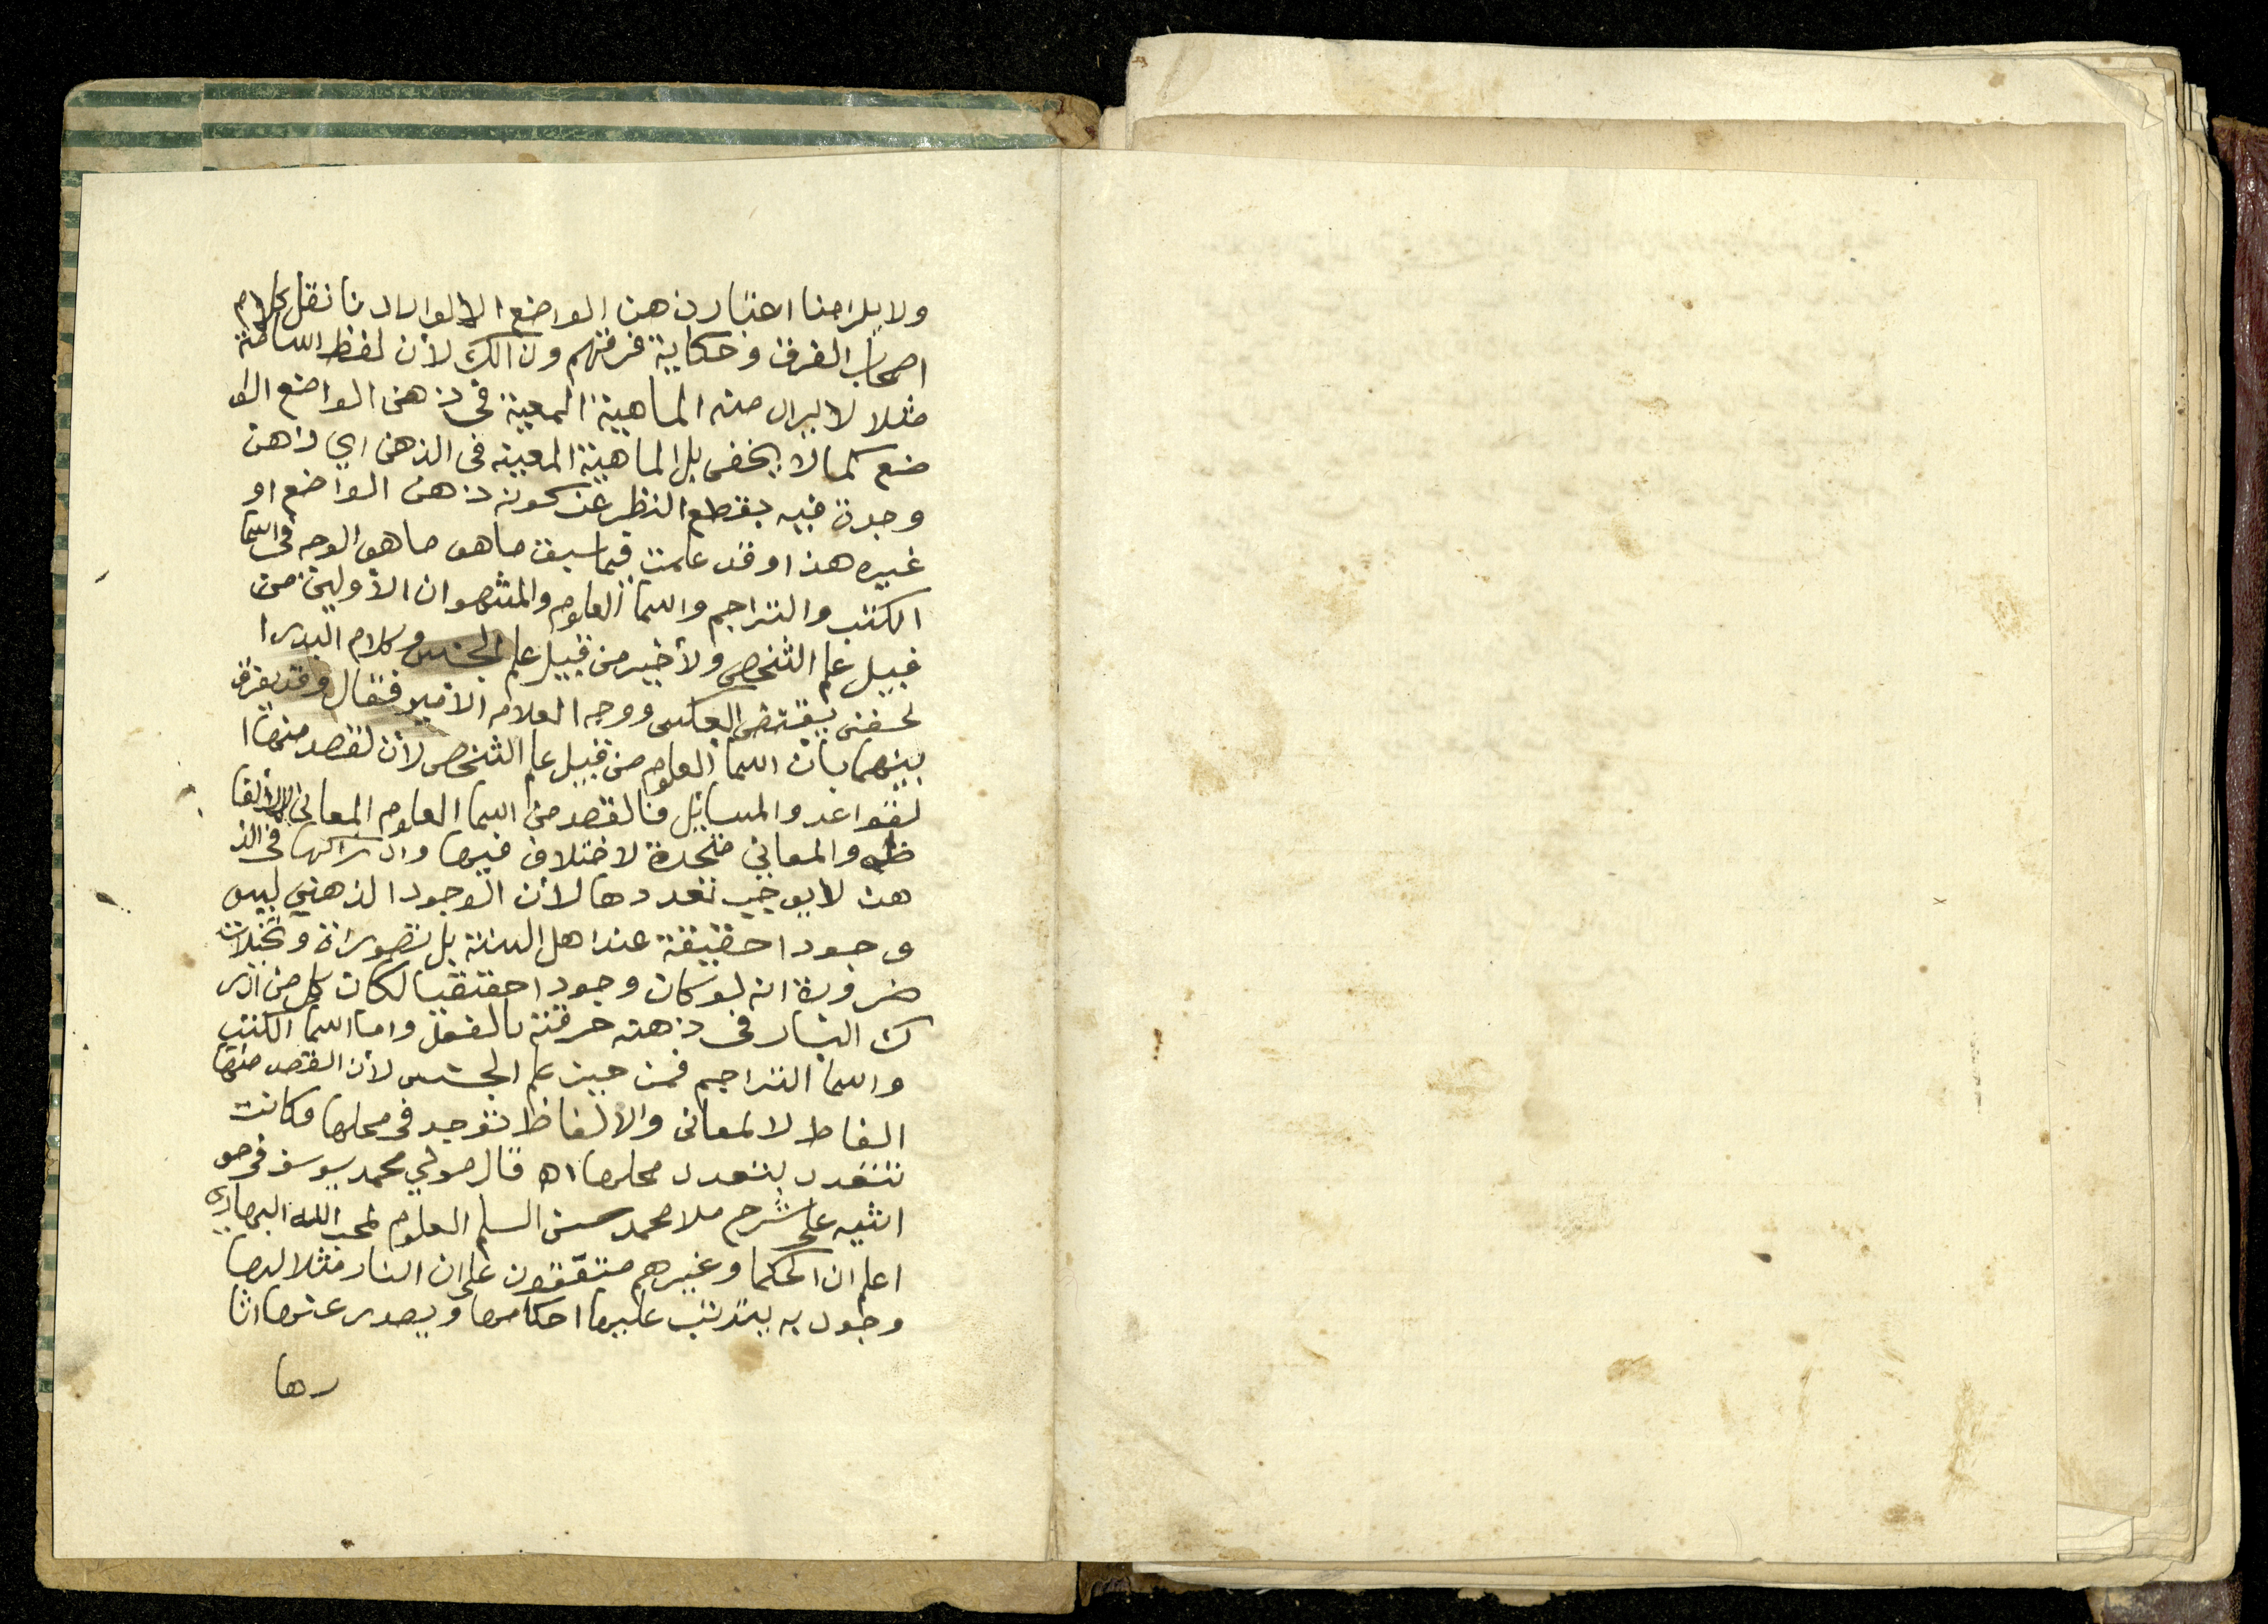 ولا يلزمنا اعتبار ذهن الواضع الا لو اراد نا نقل كلام
اصحاب الفرق وحكاية فرقتهم وذالك لأن لفظ اسامة
مثلا لا يراد منه الماهية المعينة في ذهن الواضع الوا
ضع كما لا يخفى بل الماهية المعينة في الذهن اي ذاهن
وجدة فيه بقطع النظر عن كونه ذهن الواضع او
غيره هذا وقد علمت فيما سبق ما هو ما هو الوجه في اسما
الكتب والتراجم واسما العلوم والمشهوان الأولين من
قبيل علم الشخص ولأخير من قبيل علم الجنس وكلام البدر ا
لحفنى يقتضي العكس ووجه العلامه الامير فقال وقد يفرق
بينهما بأن اسما العلوم من قبيل علم الشخص لأن لقصد منها ا
لقواعد والمسايل فالقصد من اسما العلوم المعاني لا الألفا
ظ والمعاني متحدة لا ختلاف فيها وادراكها في الذ
هن لا يوجب تعددها لأن الوجود الذهني ليس
وجودا حقيقة عند اهل السنة بل تصوراة وتخيلات
ضرورة انه لو كان وجودا حقتقيا لكان كل من ادر
ك النار في ذهنه حرقته بالفعل واما اسما الكتب
واسما التراجم فمن حيز علم الجنس لأن القصد منها
الفاط لا لمعاني والالفاظ توجد في محلها فكانت
تتعدد بتعدد محلها اه قال مولي محمد يوسف في حو
اشيه على شرح ملا محمد حسن السلم العلوم لمحب الله البهاري
اعلم ان الحكما وغيرهم متفقون على ان النار مثلا لها
وجود به يترتب عليها احكامها ويصدر عنها اثا
رها